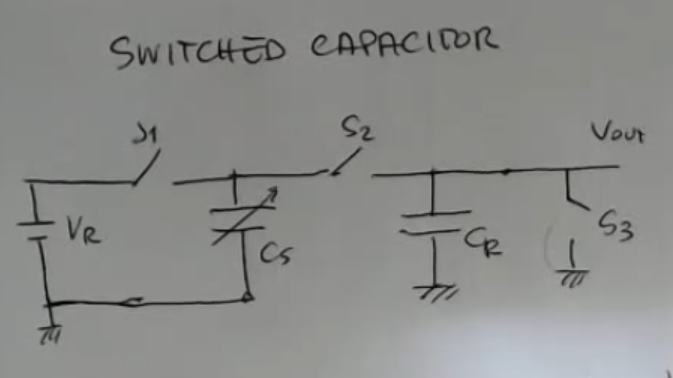 SWITCHED CAPACITOR
S1
S2
Vout
VR
CS
CR
S3